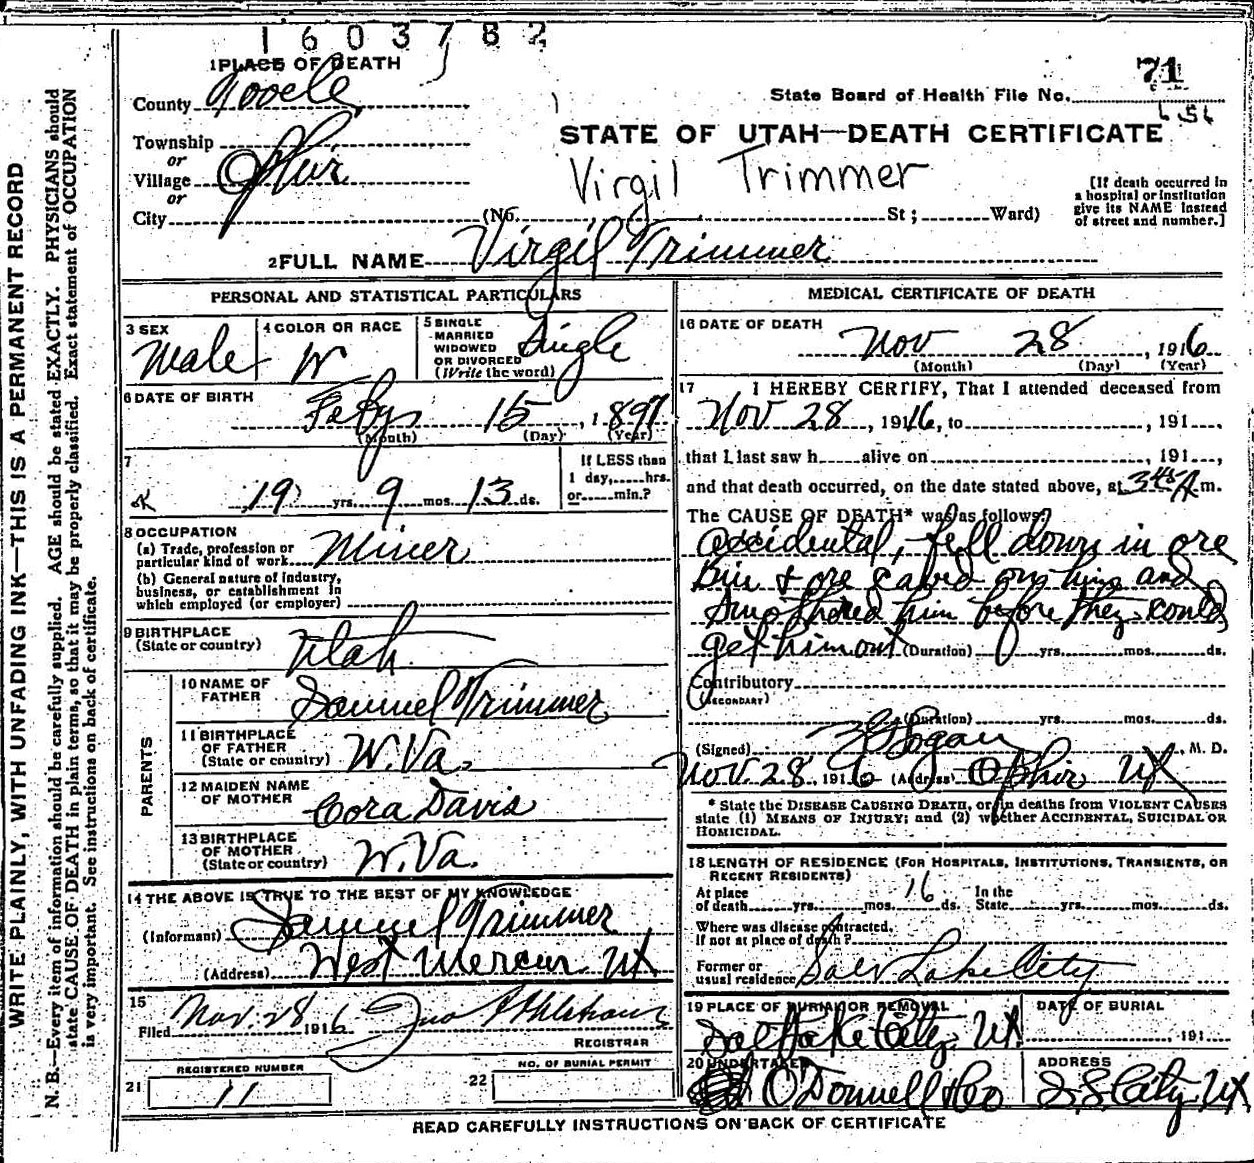 1603782
1 PLACE OF DEATH
71
County Tooele
State Board of Health File No.
Township
or
Village Ophir
or
City
STATE OF UTAH—DEATH CERTIFICATE
Virgil Trimmer
[If death occurred in
a hospital or institution
give its NAME instead
of street and number.]
(No. St; Ward)
2 FULL NAME Virgil Trimmer
PERSONAL AND STATISTICAL PARTICULARS
3 SEX Male
4 COLOR OR RACE W
5 SINGLE
MARRIED
WIDOWED
OR DIVORCED
(Write the word) Single
6 DATE OF BIRTH
Feby 15, 1897
(Month) (Day) (Year)
7
19 yrs. 9 mos. 13 ds.
If LESS than
1 day, hrs.
or min.?
8 OCCUPATION
(a) Trade, profession or
particular kind of work Miner
(b) General nature of Industry,
business, or establishment in
which employed (or employer)
9 BIRTHPLACE
(State or country) Utah
PARENTS
10 NAME OF
FATHER Samuel Trimmer
11 BIRTHPLACE
OF FATHER
(State or country) W. Va.
12 MAIDEN NAME
OF MOTHER Cora Davis
13 BIRTHPLACE
OF MOTHER
(State or country) W. Va.
14 THE ABOVE IS TRUE TO THE BEST OF MY KNOWLEDGE
(Informant) Samuel Trimmer
(Address) West Mercur Ut
15
Filed Nov. 28 1916 Jno
REGISTRAR
REGISTERED NUMBER
21 11
NO. OF BURIAL PERMIT
22
MEDICAL CERTIFICATE OF DEATH
16 DATE OF DEATH
Nov 28, 1916
(Month) (Day) (Year)
17 I HEREBY CERTIFY, That I attended deceased from
Nov 28, 1916, to , 191 ,
that I last saw h alive on , 191 ,
and that death occurred, on the date stated above, at 3 45 A m.
The CAUSE OF DEATH* was as follows:
accidental, fell down in ore
Bin & ore caved on him and
Smothered him before they could
get him out (Duration) yrs. mos. ds.
Contributory
(SECONDARY)
(Duration) yrs. mos. ds.
(Signed) , M. D.
Nov. 28, 1916 (Address) Ophir Ut
* State the DISEASE CAUSING DEATH, or in deaths from VIOLENT CAUSES
state (1) MEANS OF INJURY; and (2) whether ACCIDENTAL, SUICIDAL OR
HOMICIDAL.
18 LENGTH OF RESIDENCE (FOR HOSPITALS, INSTITUTIONS, TRANSIENTS, OR
RECENT RESIDENTS)
At place
of death yrs. mos. 16 ds.
In the
State yrs. mos. ds.
Where was disease contracted,
If not at place of death?
Former or
usual residence Salt Lake City
19 PLACE OF BURIAL OR REMOVAL
Salt Lake City, Ut
DATE OF BURIAL
, 191
20 UNDERTAKER
O'Donnell & Co
ADDRESS
S. L. City Ut
READ CAREFULLY INSTRUCTIONS ON BACK OF CERTIFICATE
WRITE PLAINLY, WITH UNFADING INK—THIS IS A PERMANENT RECORD
N. B.—Every item of information should be carefully supplied. AGE should be stated EXACTLY. PHYSICIANS should
state CAUSE OF DEATH in plain terms, so that it may be properly classified. Exact statement of OCCUPATION
is very important. See instructions on back of certificate.